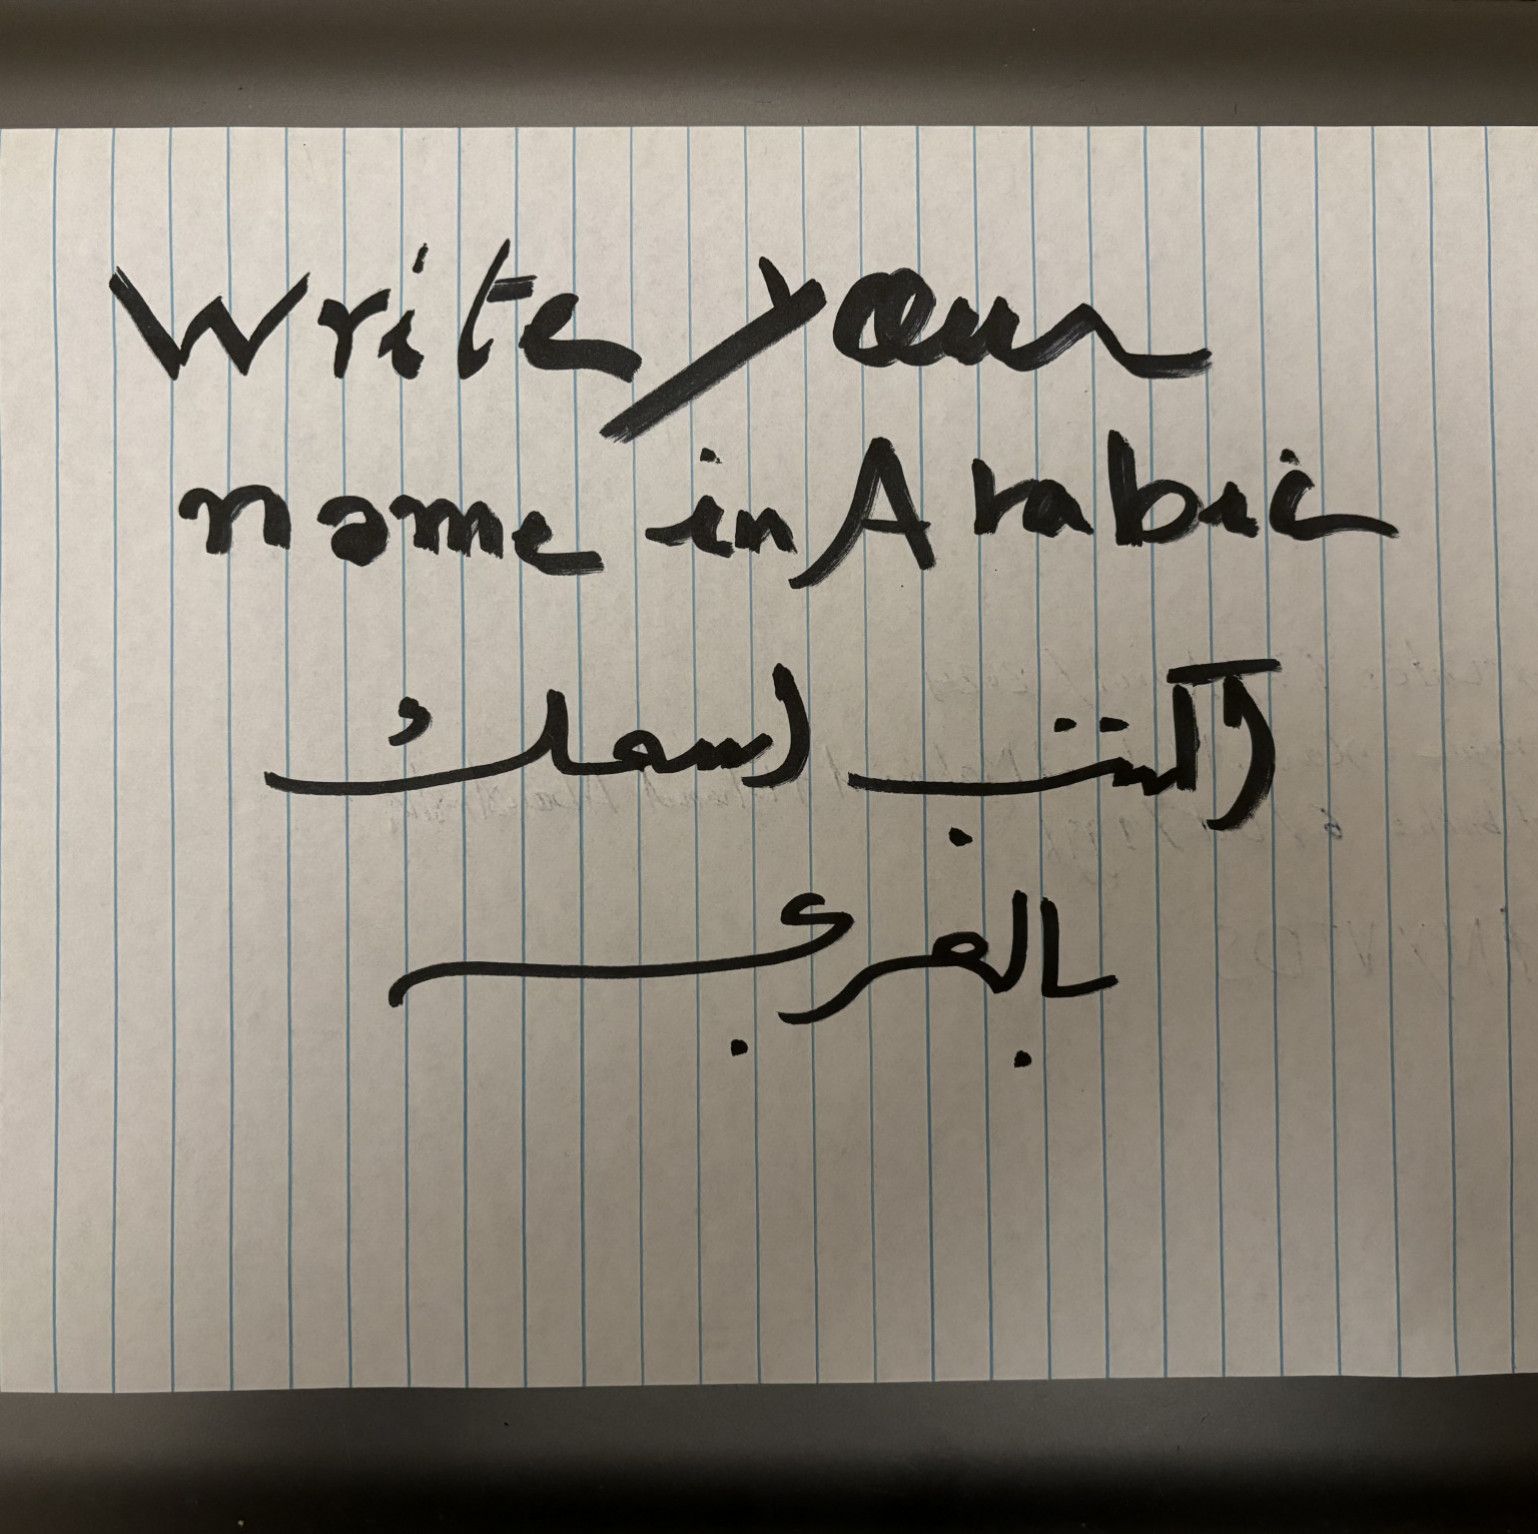 Write your
name in Arabic
اكتب اسمك
بالعربي